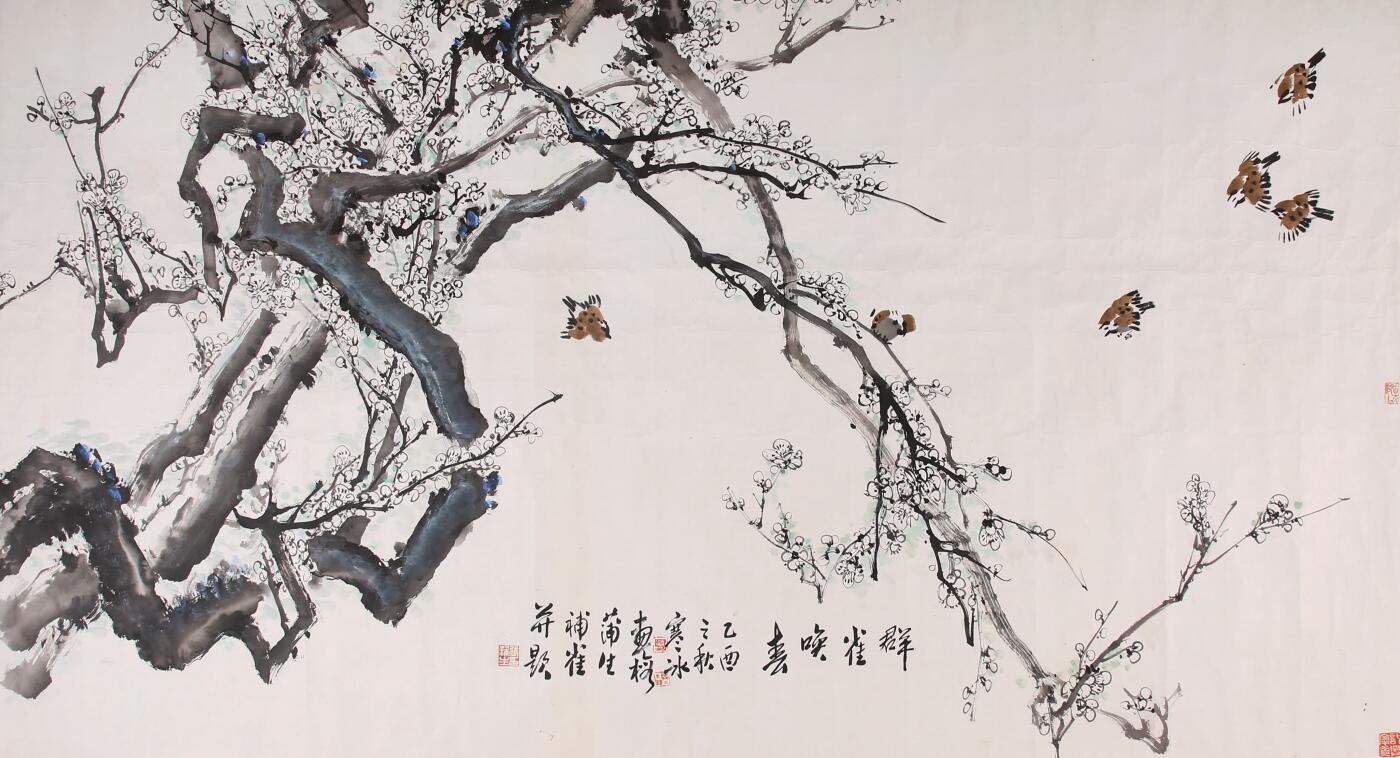 群雀唤春
乙酉
之秋
寒冰
画梅
蒲生
補雀
并题